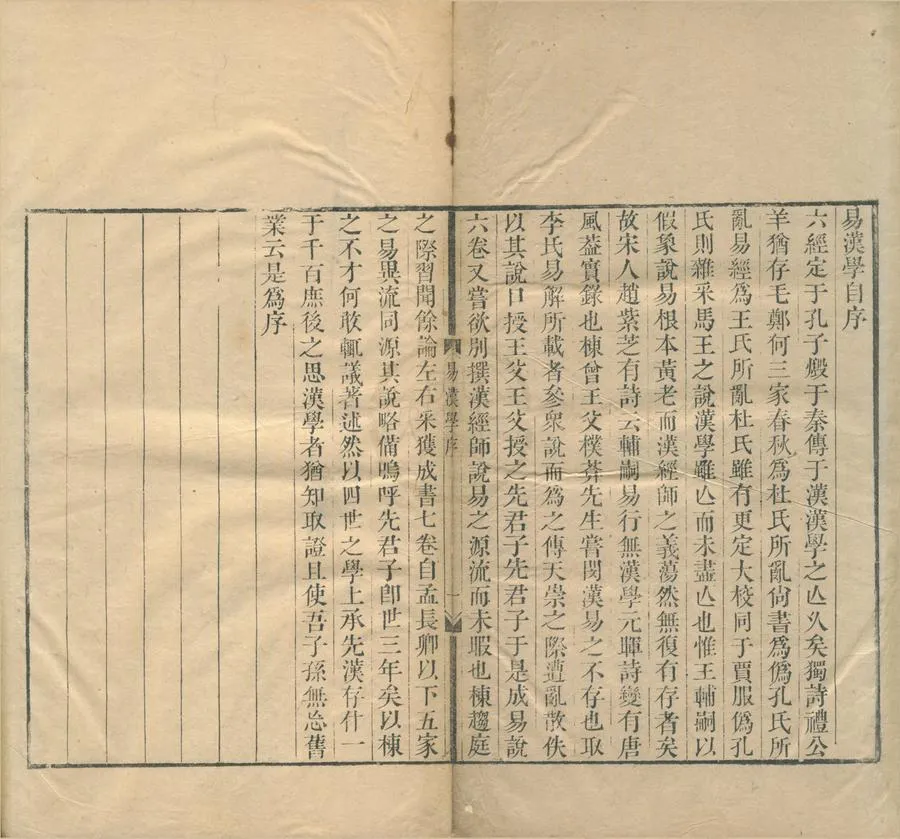 易漢學自序
六經定于孔子燬于秦傳于漢漢學之亾久矣獨詩禮公
羊猶存毛鄭何三家春秋爲杜氏所亂尙書爲僞孔氏所
亂易經爲王氏所亂杜氏雖有更定大校同于賈服僞孔
氏則雜采馬王之說漢學雖亾而未盡亾也惟王輔嗣以
假象說易根本黃老而漢經師之義蕩然無復有存者矣
故宋人趙紫芝有詩云輔嗣易行無漢學元暉詩變有唐
風葢實錄也棟曾王父樸菴先生嘗閔漢易之不存也取
李氏易解所載者參衆說而爲之傳天崇之際遭亂散佚
以其說口授王父王父授之先君子先君子于是成易說
六卷又嘗欲別撰漢經師說易之源流而未暇也棟趨庭
易漢學序
一
之際習聞餘論左右采獲成書七卷自孟長卿以下五家
之易異流同源其說略備嗚呼先君子卽世三年矣以棟
之不才何敢輒議著述然以四世之學上承先漢存什一
于千百庶後之思漢學者猶知取證且使吾子孫無忘舊
業云是爲序